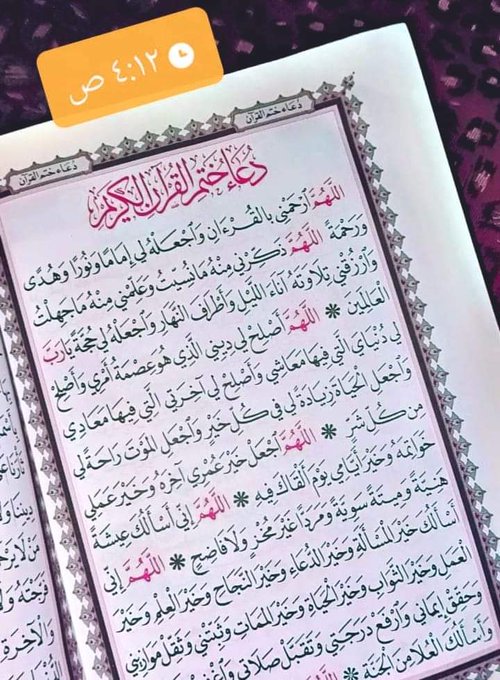 ٤:١٢ ص
دُعَاءُ خَتْمِ الْقُرْآنِ
دُعَاءُ خَتْمِ الْقُرْآنِ
دُعَاءُ خَتْمِ الْقُرْآنِ الْكَرِيمِ
اللَّهُمَّ ارْحَمْنِي بِالْقُرْءَانِ وَاجْعَلْهُ لِي إِمَامًا وَنُورًا وَهُدًى
وَرَحْمَةً اللَّهُمَّ ذَكِّرْنِي مِنْهُ مَا نُسِّيتُ وَعَلِّمْنِي مِنْهُ مَا جَهِلْتُ
وَارْزُقْنِي تِلَاوَتَهُ آنَاءَ اللَّيْلِ وَأَطْرَافَ النَّهَارِ وَاجْعَلْهُ لِي حُجَّةً يَارَبَّ
الْعَالَمِينَ * اللَّهُمَّ أَصْلِحْ لِي دِينِي الَّذِي هُوَ عِصْمَةُ أَمْرِي وَأَصْلِحْ
لِي دُنْيَايَ الَّتِي فِيهَا مَعَاشِي وَأَصْلِحْ لِي آخِرَتِي الَّتِي فِيهَا مَعَادِي
وَاجْعَلِ الْحَيَاةَ زِيَادَةً لِي فِي كُلِّ خَيْرٍ وَاجْعَلِ الْمَوْتَ رَاحَةً لِي
مِنْ كُلِّ شَرٍّ * اللَّهُمَّ اجْعَلْ خَيْرَ عُمْرِي آخِرَهُ وَخَيْرَ عَمَلِي
خَوَاتِمَهُ وَخَيْرَ أَيَّامِي يَوْمَ أَلْقَاكَ فِيهِ * اللَّهُمَّ إِنِّي أَسْأَلُكَ عِيشَةً
هَنِيَّةً وَمِيتَةً سَوِيَّةً وَمَرَدًّا غَيْرَ مُخْزٍ وَلَا فَاضِحٍ * اللَّهُمَّ إِنِّي
أَسْأَلُكَ خَيْرَ الْمَسْأَلَةِ وَخَيْرَ الدُّعَاءِ وَخَيْرَ النَّجَاحِ وَخَيْرَ الْعِلْمِ وَخَيْرَ
الْعَمَلِ وَخَيْرَ الثَّوَابِ وَخَيْرَ الْحَيَاةِ وَخَيْرَ الْمَمَاتِ وَثَبِّتْنِي وَثَقِّلْ مَوَازِينِي
وَحَقِّقْ إِيمَانِي وَارْفَعْ دَرَجَتِي وَتَقَبَّلْ صَلَاتِي وَاغْفِرْ
وَأَسْأَلُكَ الْعُلَا مِنَ الْجَنَّةِ * اللَّهُمَّ